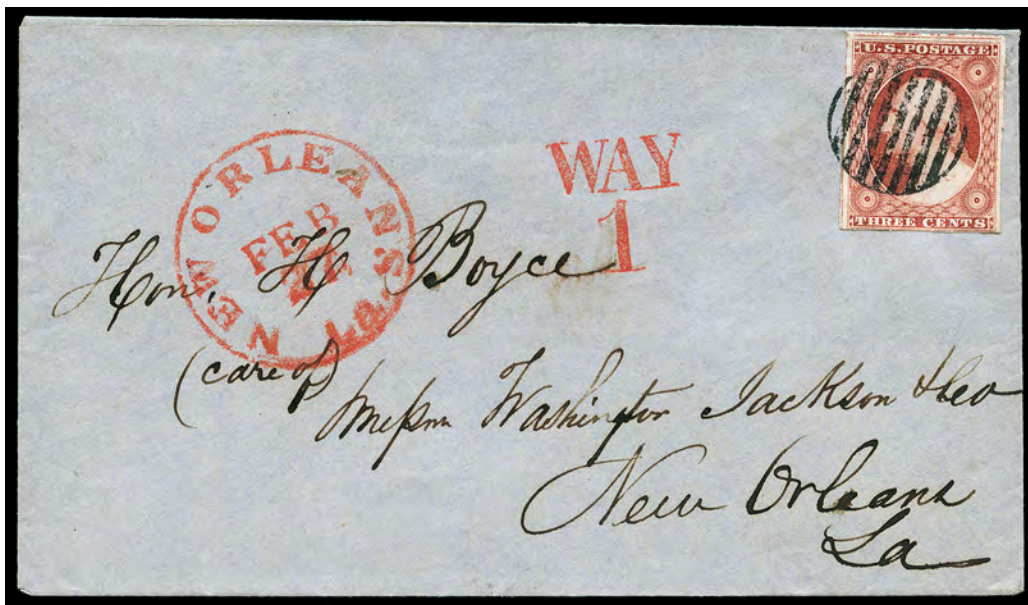 U.S. POSTAGE
THREE CENTS
WAY
1
NEW ORLEANS La.
FEB
Hon. H Boyce
(care of)
Messrs Washington Jackson & Co
New Orleans
La